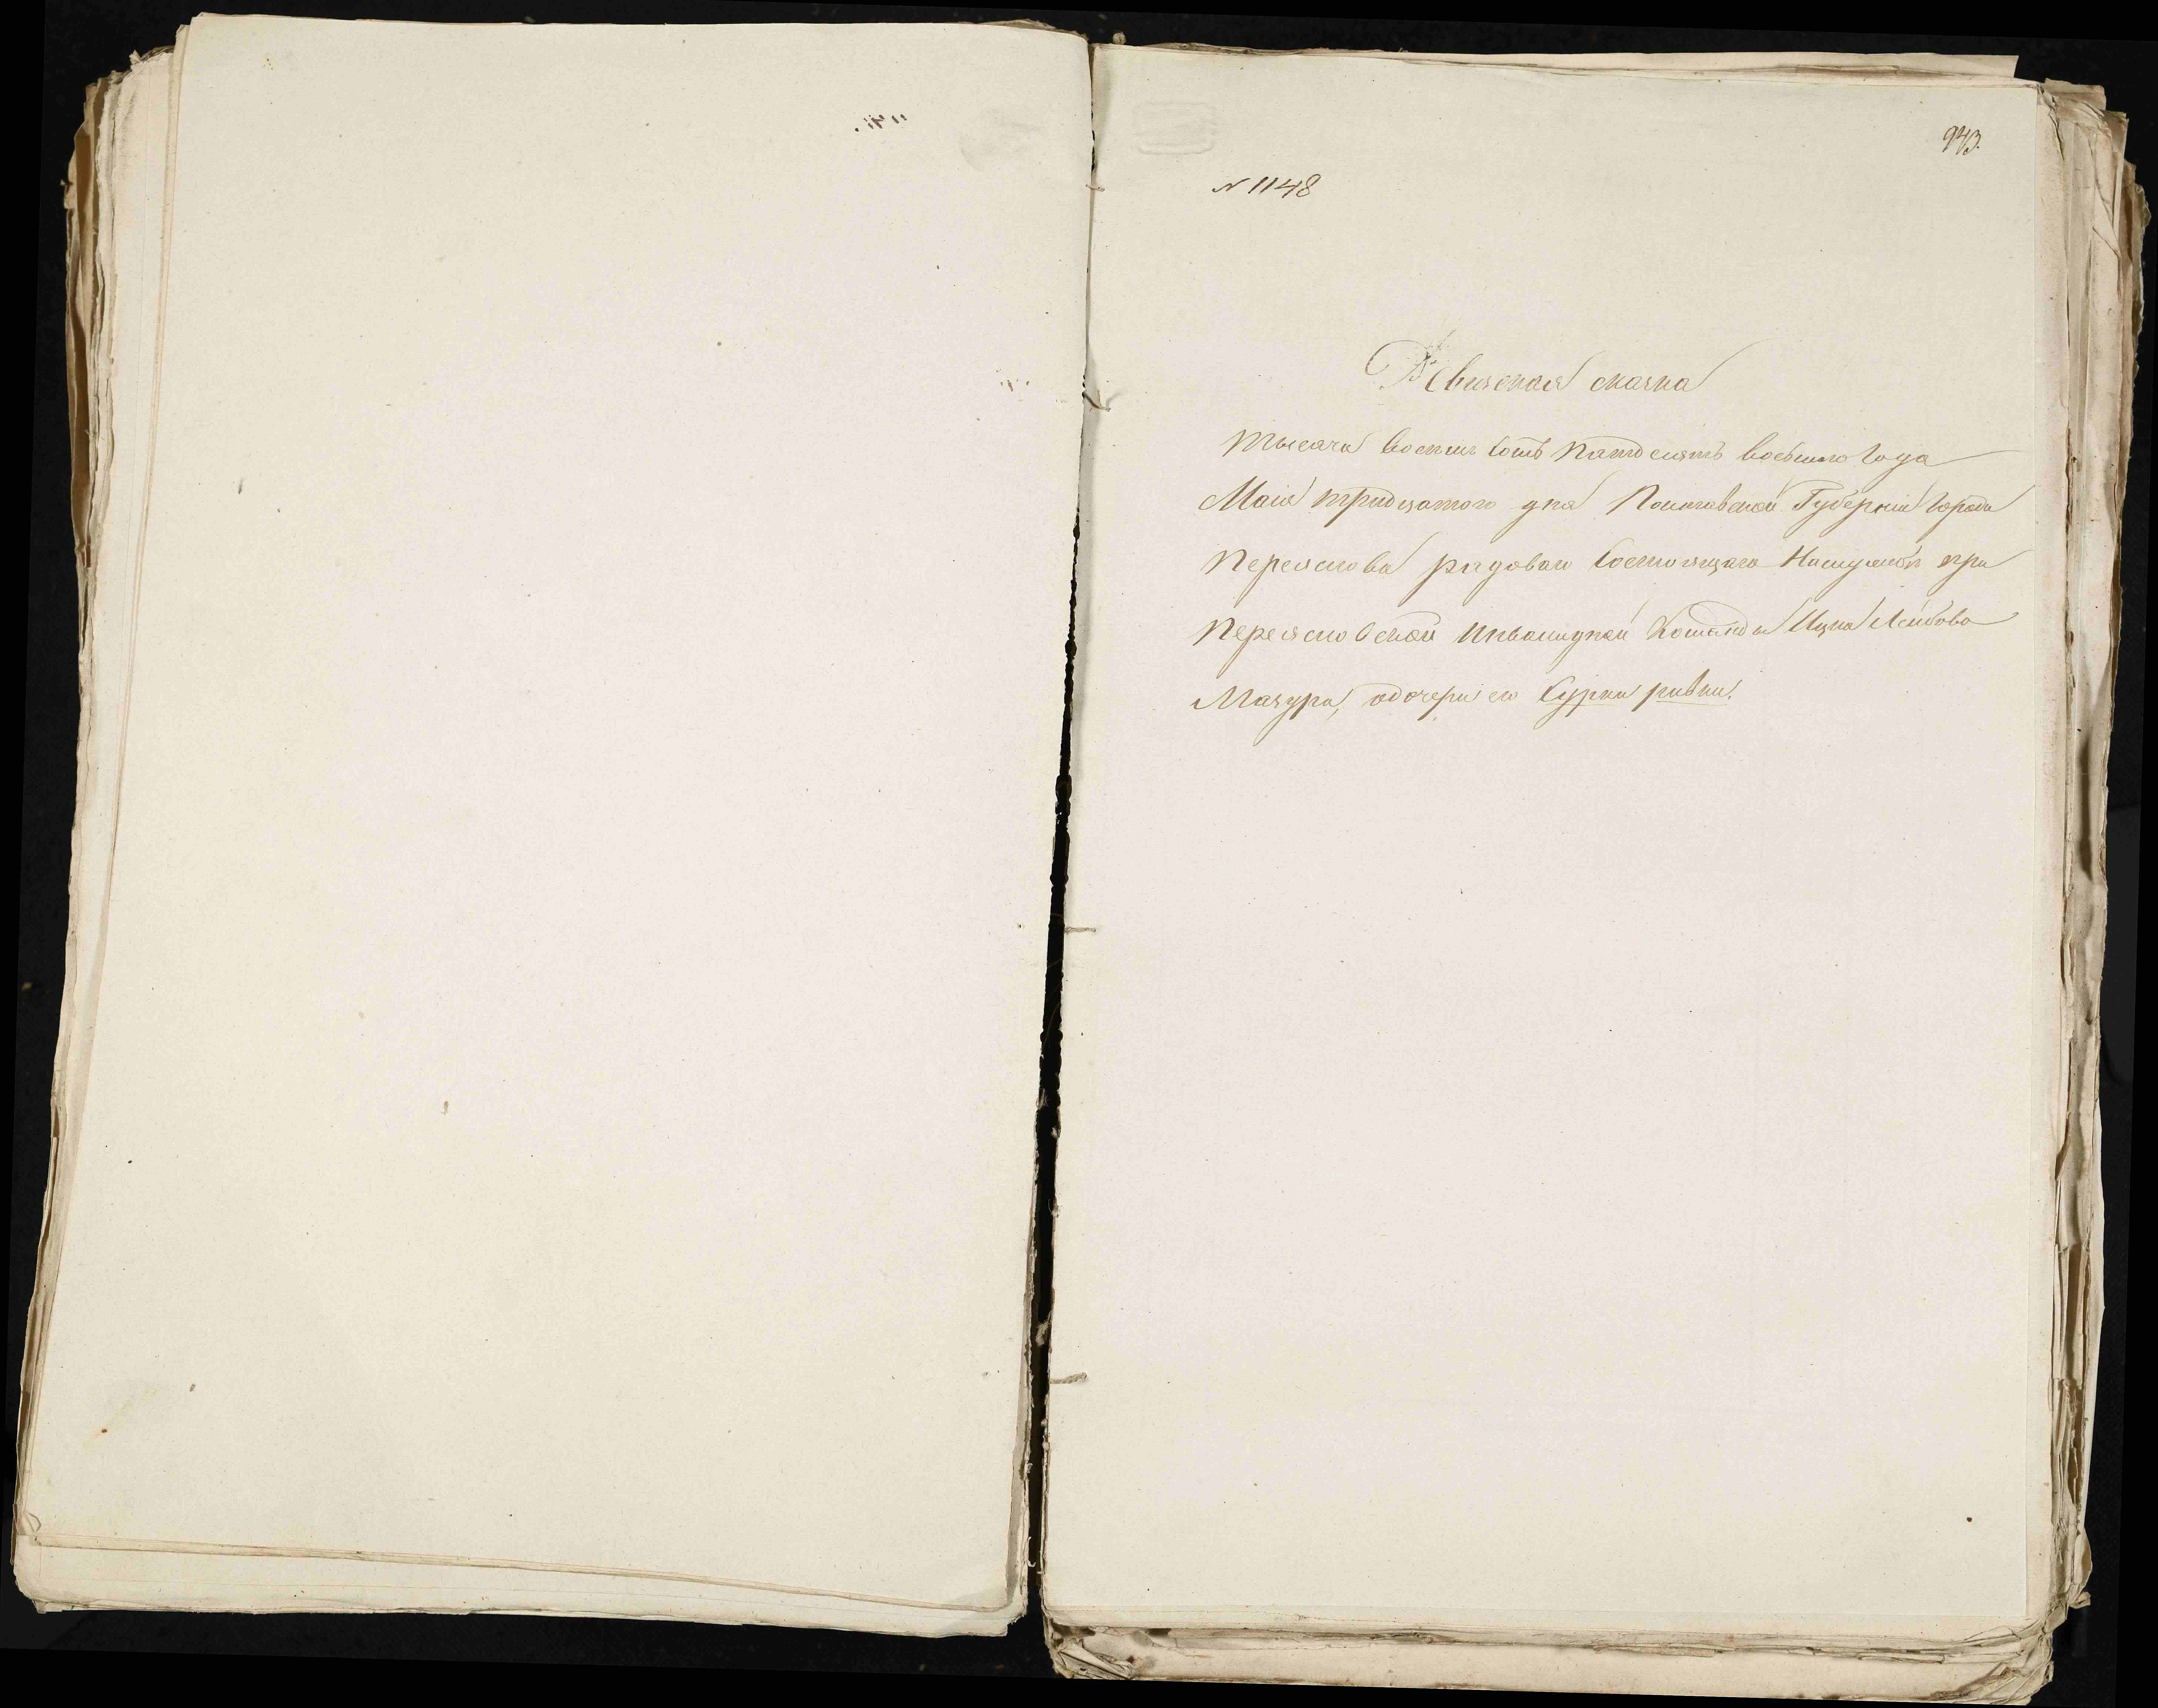 943.
N 1148
Ревизская сказка
тысяча восемь сотъ пятдесятъ восьмаго года
Маія тридцатого дня Полтавской Губерніи города
Переяслова рядоваго состоящаго на службѣ при
Переясловской инвалидной команды Ицка Лейбова
Мазура, о дочери его Сурки ривки.